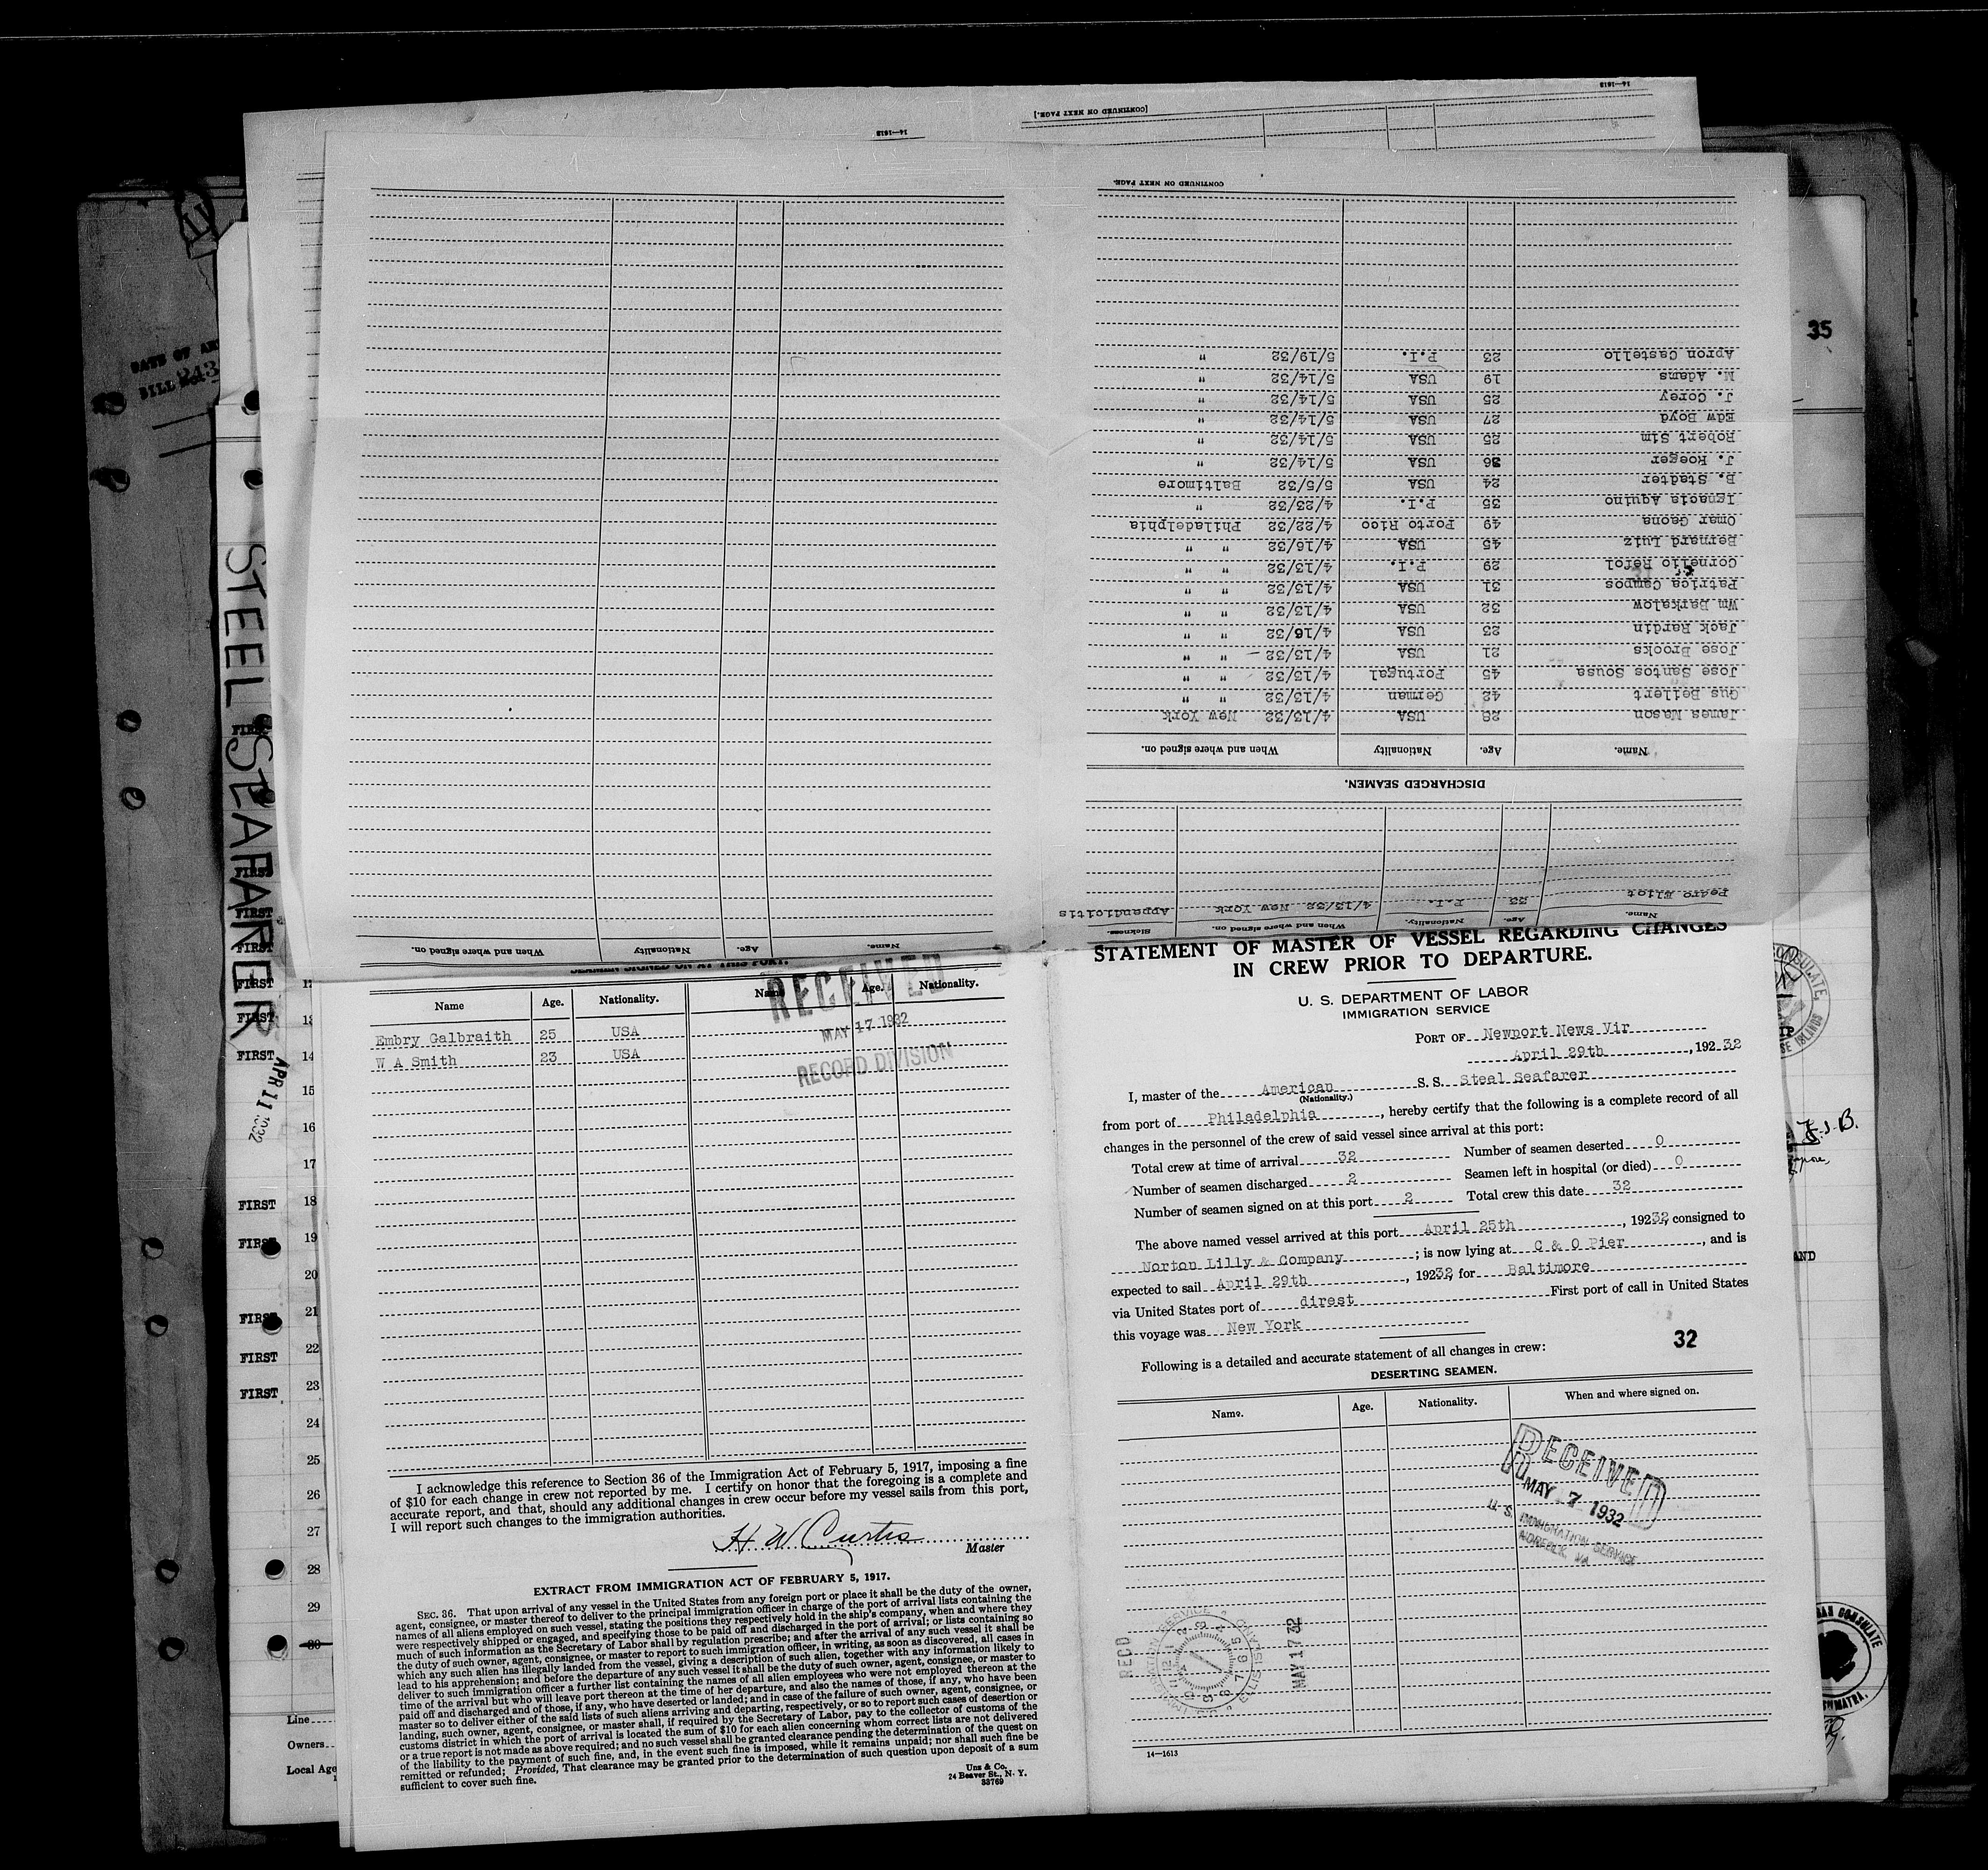 14—1613
[CONTINUED ON NEXT PAGE.]
14—1613
CONTINUED ON NEXT PAGE.
35
DATE OF
BILL 243
STEEL SEAFARER
APR 11 1932
Name. Age. Nationality When and where signed on.
Pedro Eliot 33 P.I. 4/13/32 New York Appendicitis
Name. Age. Nationality. When and where signed on. Sickness.
DISCHARGED SEAMEN.
Name. Age. Nationality When and where signed on.
James Mason 28 USA 4/13/32 New York
Gus Beilert 42 German 4/13/32 " "
Jose Santos Sousa 45 Portugal 4/13/32 " "
Jose Brooks 21 USA 4/13/32 " "
Jack Rardin 23 USA 4/16/32 " "
Wm Barkalow 32 USA 4/13/32 " "
Patrica Campos 31 USA 4/13/32 " "
Cornelio Refol 29 P.I. 4/13/32 " "
Bernard Luiz 45 USA 4/16/32 " "
Omar Gaona 49 Porto Rico 4/22/32 Philadelphia
Ignacia Aquino 35 P.I. 4/23/32 "
B. Stadter 24 USA 5/5/32 Baltimore
J. Roeger 36 USA 5/14/32 "
Robert Sim 25 USA 5/14/32 "
Edw Boyd 27 USA 5/14/32 "
J. Corey 25 USA 5/14/32 "
M. Adams 19 USA 5/14/32 "
Apron Castello 23 P.I. 5/19/32 "
SEAMEN SIGNED ON AT THIS PORT.
Name Age. Nationality. Name Age. Nationality.
Embry Galbraith 25 USA
W A Smith 23 USA
RECEIVED
MAY 17 1932
RECORD DIVISION
I acknowledge this reference to Section 36 of the Immigration Act of February 5, 1917, imposing a fine
of $10 for each change in crew not reported by me. I certify on honor that the foregoing is a complete and
accurate report, and that, should any additional changes in crew occur before my vessel sails from this port,
I will report such changes to the immigration authorities.
H W Curtis
Master
EXTRACT FROM IMMIGRATION ACT OF FEBRUARY 5, 1917.
SEC. 36. That upon arrival of any vessel in the United States from any foreign port or place it shall be the duty of the owner,
agent, consignee, or master thereof to deliver to the principal immigration officer in charge of the port of arrival lists containing the
names of all aliens employed on such vessel, stating the positions they respectively hold in the ship's company, when and where they
were respectively shipped or engaged, and specifying those to be paid off and discharged in the port of arrival; or lists containing so
much of such information as the Secretary of Labor shall by regulation prescribe; and after the arrival of any such vessel it shall be
the duty of such owner, agent, consignee, or master to report to such immigration officer, in writing, as soon as discovered, all cases in
which any such alien has illegally landed from the vessel, giving a description of such alien, together with any information likely to
lead to his apprehension; and before the departure of any such vessel it shall be the duty of such owner, agent, consignee, or master to
deliver to such immigration officer a further list containing the names of all alien employees who were not employed thereon at the
time of the arrival but who will leave port thereon at the time of her departure, and also the names of those, if any, who have been
paid off and discharged and of those, if any, who have deserted or landed; and in case of the failure of such owner, agent, consignee, or
master so to deliver either of the said lists of such aliens arriving and departing, respectively, or so to report such cases of desertion or
landing, such owner, agent, consignee, or master shall, if required by the Secretary of Labor, pay to the collector of customs of the
customs district in which the port of arrival is located the sum of $10 for each alien concerning whom correct lists are not delivered
or a true report is not made as above required; and no such vessel shall be granted clearance pending the determination of the quest on
of the liability to the payment of such fine, and, in the event such fine is imposed, while it remains unpaid; nor shall such fine be
remitted or refunded; Provided, That clearance may be granted prior to the determination of such question upon deposit of a sum
sufficient to cover such fine.
Unz & Co.
24 Beaver St., N. Y.
33769
STATEMENT OF MASTER OF VESSEL REGARDING CHANGES
IN CREW PRIOR TO DEPARTURE.
U. S. DEPARTMENT OF LABOR
IMMIGRATION SERVICE
PORT OF Newport News Vir
April 29th, 192 32
I, master of the American S. S. Steel Seafarer
(Nationality.)
from port of Philadelphia, hereby certify that the following is a complete record of all
changes in the personnel of the crew of said vessel since arrival at this port:
Total crew at time of arrival 32 Number of seamen deserted 0
Number of seamen discharged 2 Seamen left in hospital (or died) 0
Number of seamen signed on at this port 2 Total crew this date 32
The above named vessel arrived at this port April 25th, 19232, consigned to
Norton Lilly & Company; is now lying at C & O Pier, and is
expected to sail April 29th, 19232, for Baltimore
via United States port of direst First port of call in United States
this voyage was New York
32
Following is a detailed and accurate statement of all changes in crew:
DESERTING SEAMEN.
Name. Age. Nationality. When and where signed on.
RECEIVED
MAY 7 1932
U. S. IMMIGRATION SERVICE
NORFOLK, VA
RECD
MAY 17 32
14—1613
FIRST
FIRST
FIRST
FIRST
FIRST
FIRST 13
FIRST 14
15
16
17
FIRST 18
FIRST 19
20
FIRST 21
FIRST 22
FIRST 23
24
25
26
27
28
29
30
Line
Owners
Local Age
J. B.
AND